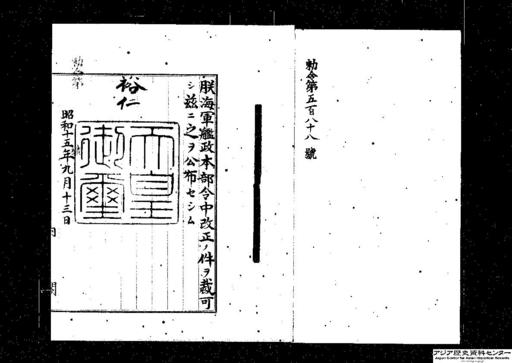 勅令第五百八十八號
朕海軍艦政本部令中改正ノ件ヲ裁可
シ茲ニ之ヲ公布セシム
裕仁
天皇御璽
昭和十五年九月十三日
内閣
勅令第
アジア歴史資料センター
Japan Center for Asian Historical Records